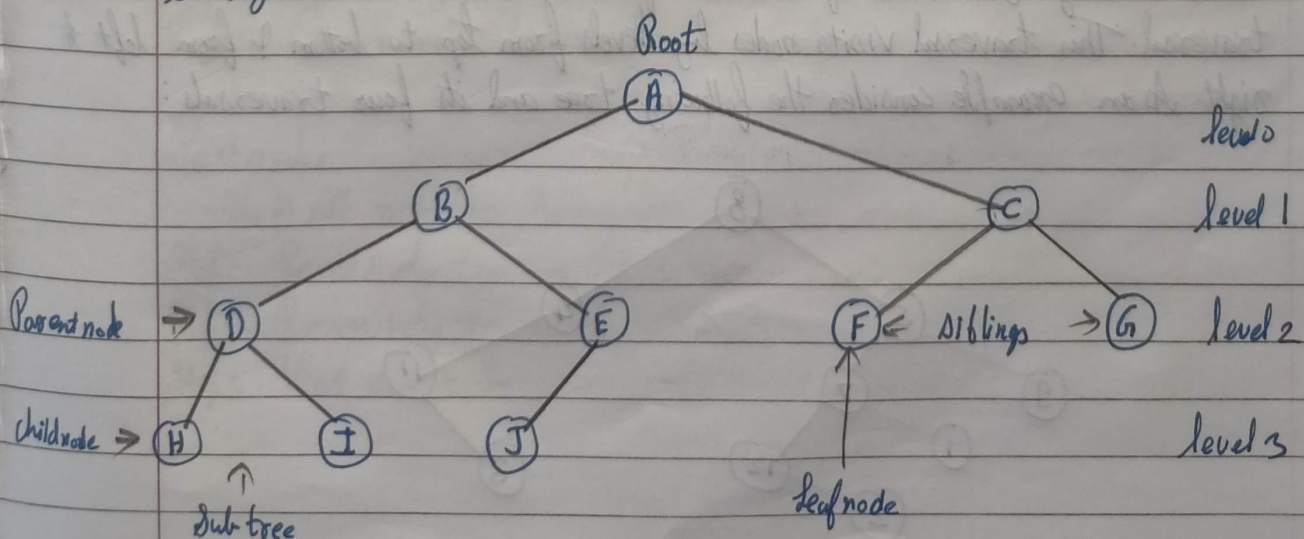 Root
A
level 0
B
C
level 1
Parent node
D
E
F
siblings
G
level 2
child node
H
I
J
level 3
Sub tree
Leaf node